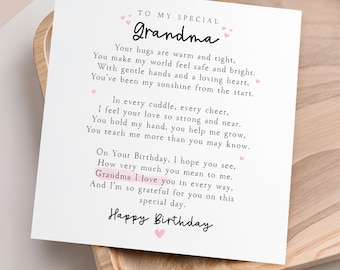 TO MY SPECIAL
Grandma
Your hugs are warm and tight,
You make my world feel safe and bright.
With gentle hands and a loving heart,
You've been my sunshine from the start.
In every cuddle, every cheer,
I feel your love so strong and near.
You hold my hand, you help me grow,
You teach me more than you may know.
On Your Birthday, I hope you see,
How very much you mean to me.
Grandma I love you in every way,
And I'm so grateful for you on this
special day.
Happy Birthday